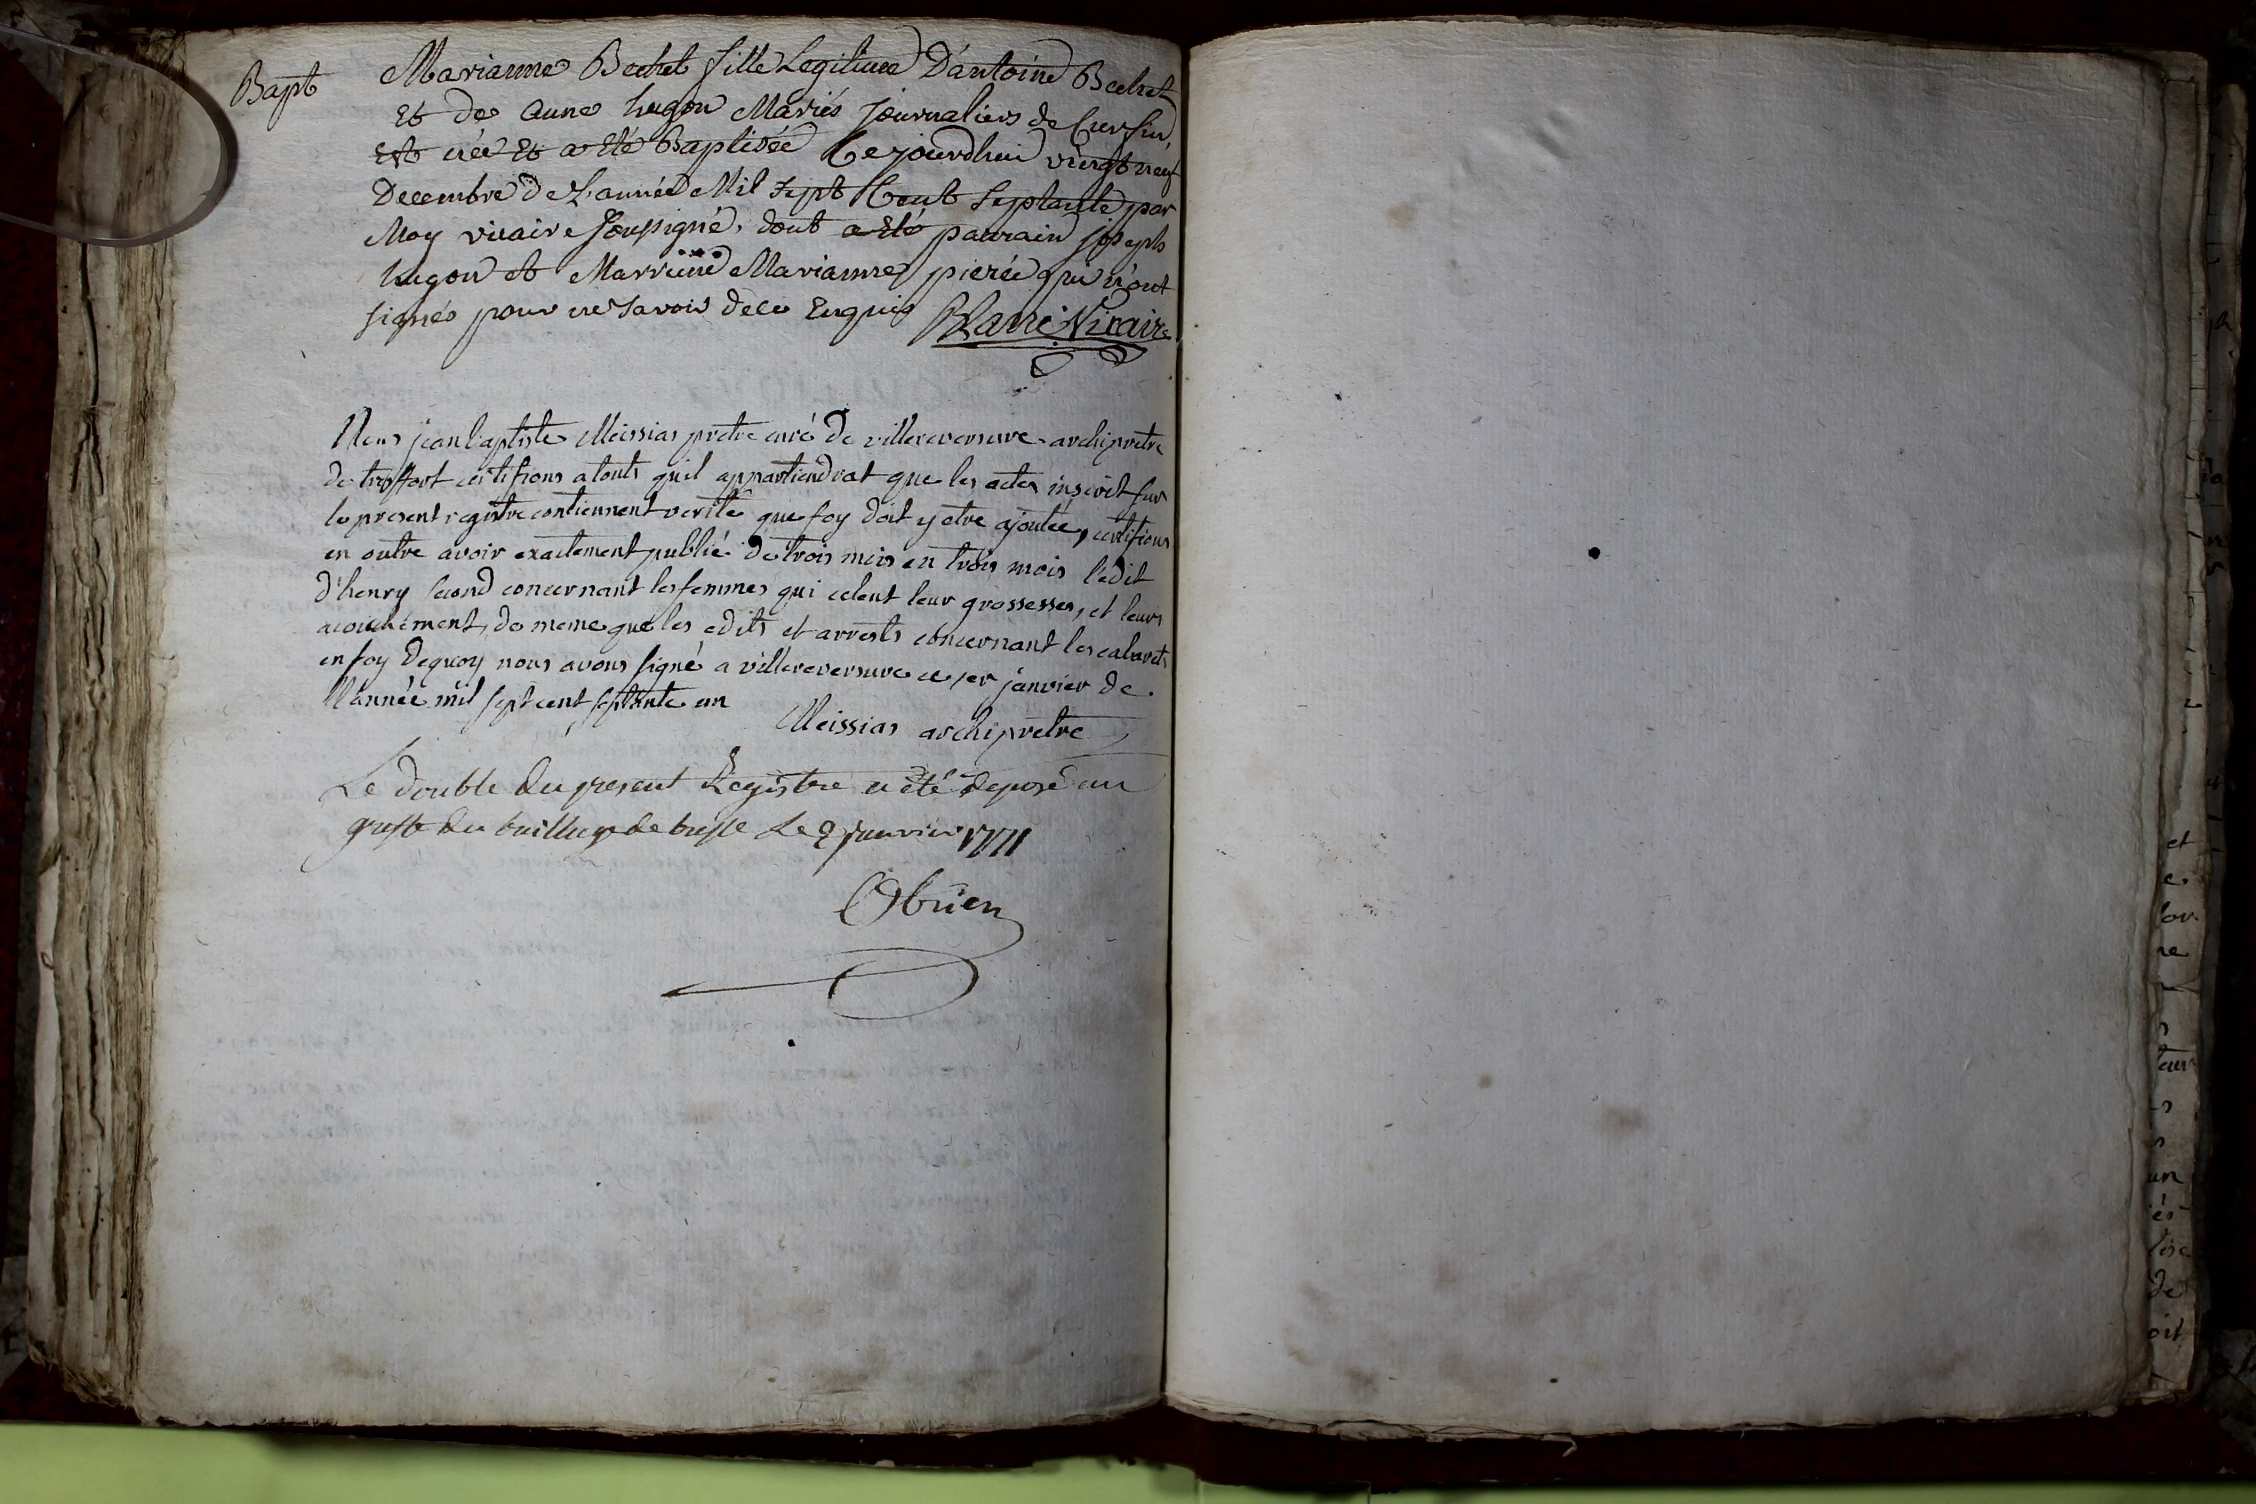 Bapt
Marianne Bechet fille Legitime D'antoine Bechet
Et de anne hugon Mariés journaliers de Cursin,
Est née Et a Eté Baptisée Cejourdhui vingt neuf
Decembre de L'année Mil Sept Cent Septante par
Moy vicaire Soussigné, dont a Eté parrain joseph
hugon et Marreine Marianne pierée qui n'ont
signés pour ne Savoir dece Enquis Vicaire
Nous jean baptiste Meissias pretre curé de villereversure archipretre
de treffort certifions a touts qu'il appartiendrat que les actes inscrit sur
le present registre contiennent verité que foy doit y etre ajoutée, certifions
en outre avoir exactement publié de trois mois en trois mois l'edit
d'henry second concernant les femmes qui celent leur grossesses, et leurs
acouchement, de meme que les edits et arrests concernant les cabarets
en foy dequoy nous avons signé a villereversure ce 1er janvier de
l'année mil sept cent septante un
Meissias archipretre
Le double du present Registre a été deposé au
greffe du bailliage de bresse Le 9 janvier 1771
Obrien
et
e
re
s
s
un
és
de
oit